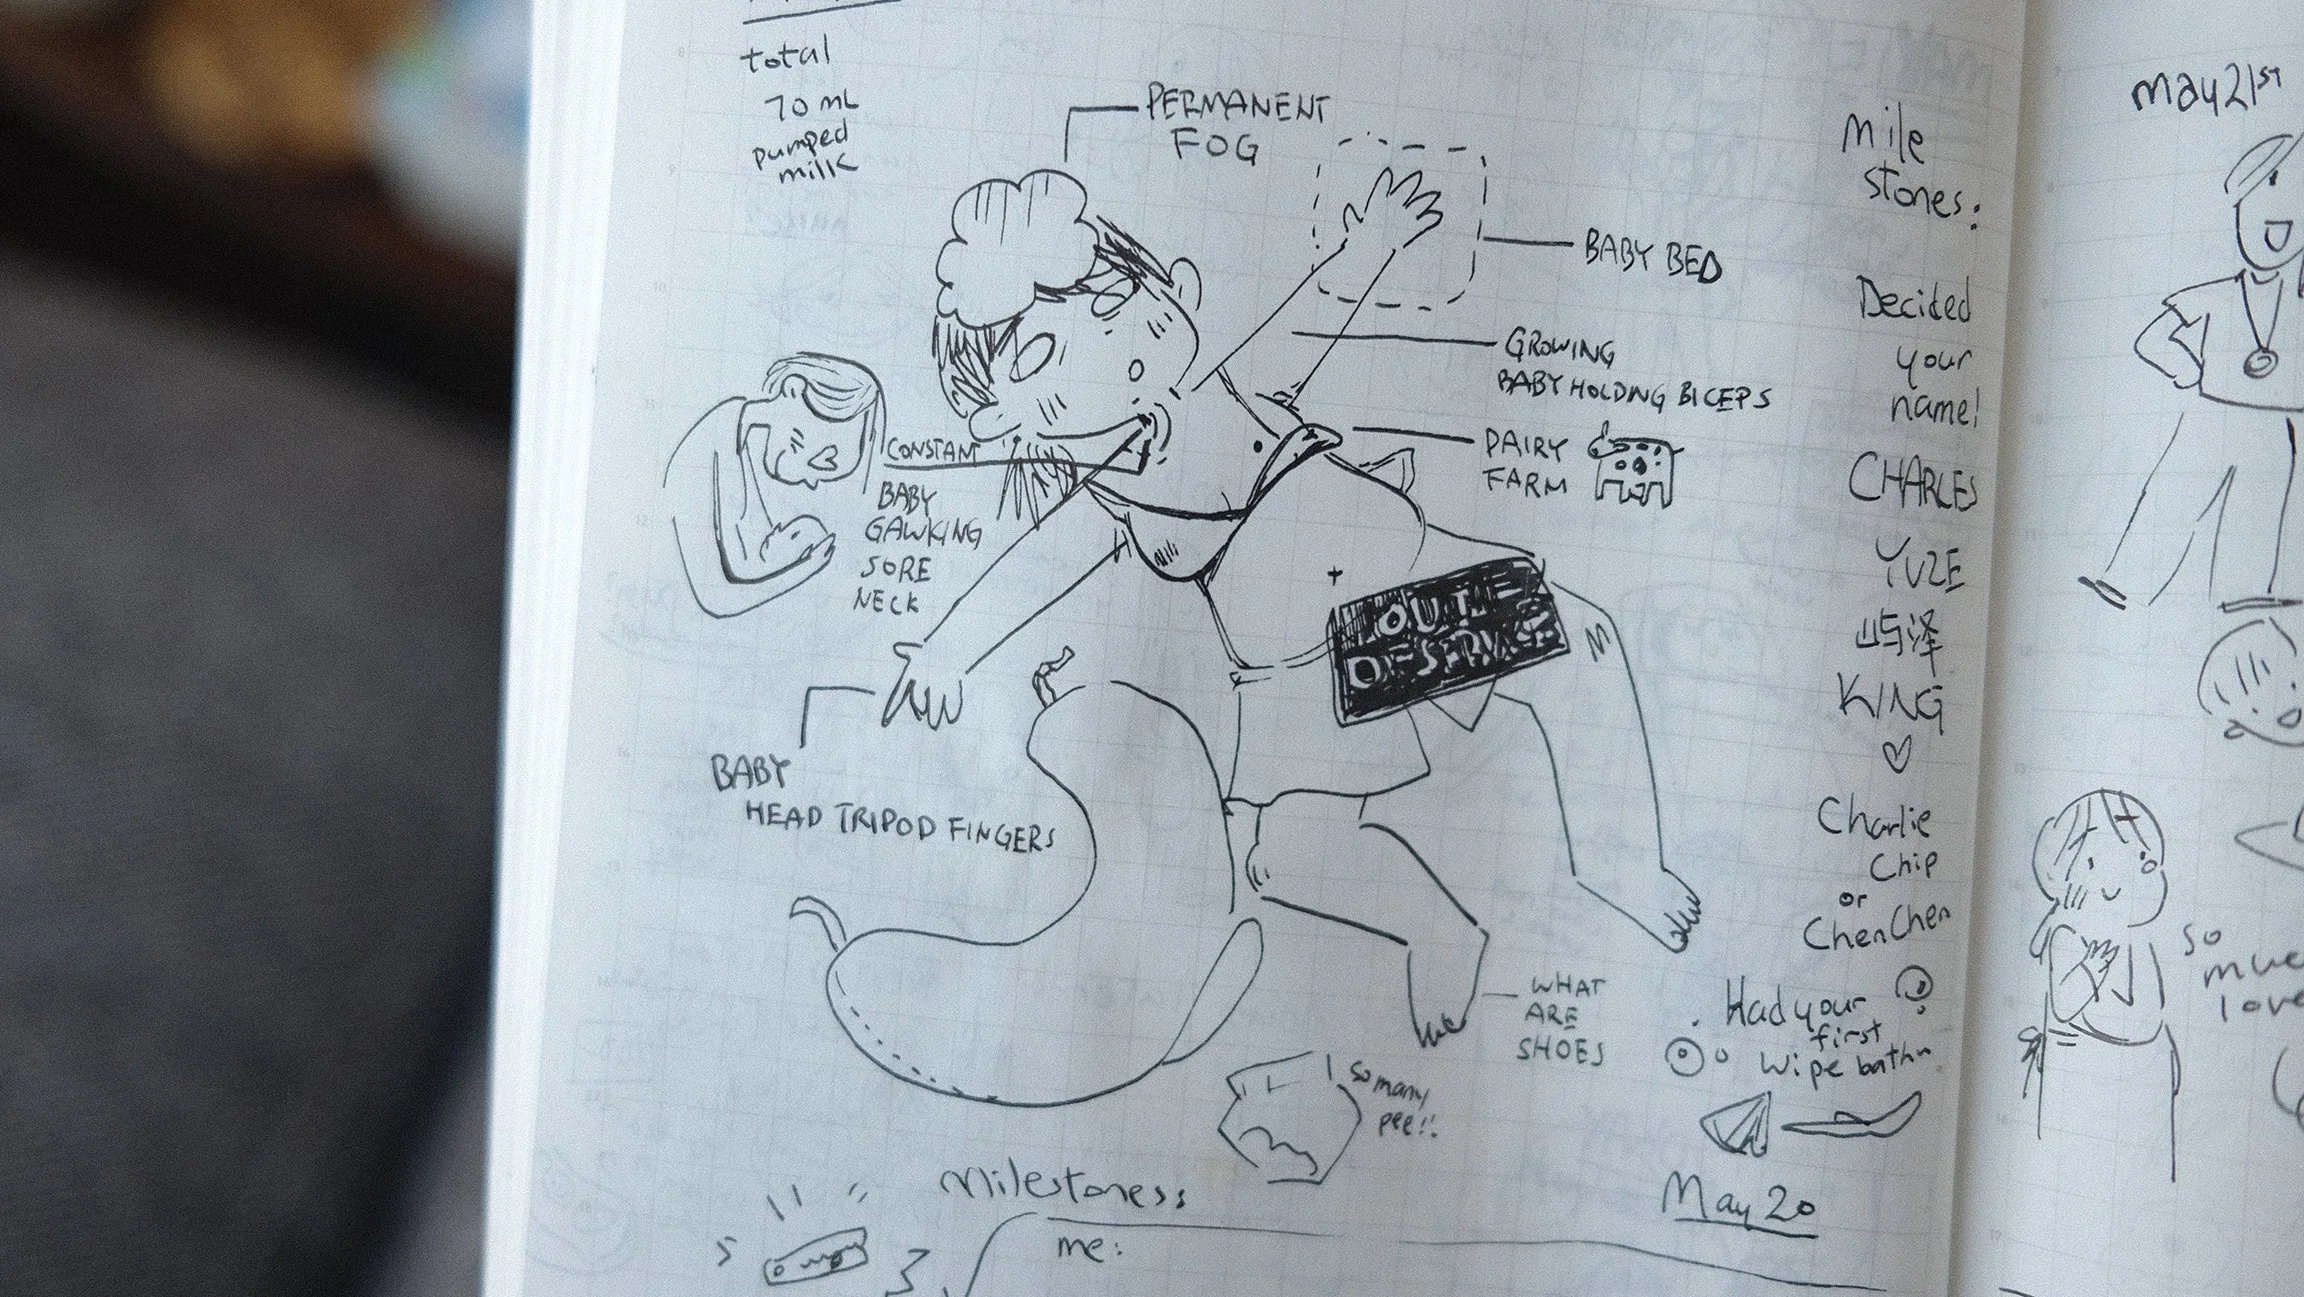 total
70 mL
pumped
milk
PERMANENT
FOG
BABY BED
GROWING
BABY HOLDING BICEPS
DAIRY
FARM
CONSTANT
BABY
GAWKING
SORE
NECK
OUT
OF SERVICE
BABY
HEAD TRIPOD FINGERS
WHAT
ARE
SHOES
so many
pee!!
Milestoness
me:
Mile
stones:
Decided
your
name!
CHARLES
YUZE
屿泽
KING
Charlie
Chip
or
ChenChen
Had your
first
wipe bath
May 20
May 21st
so
much
love